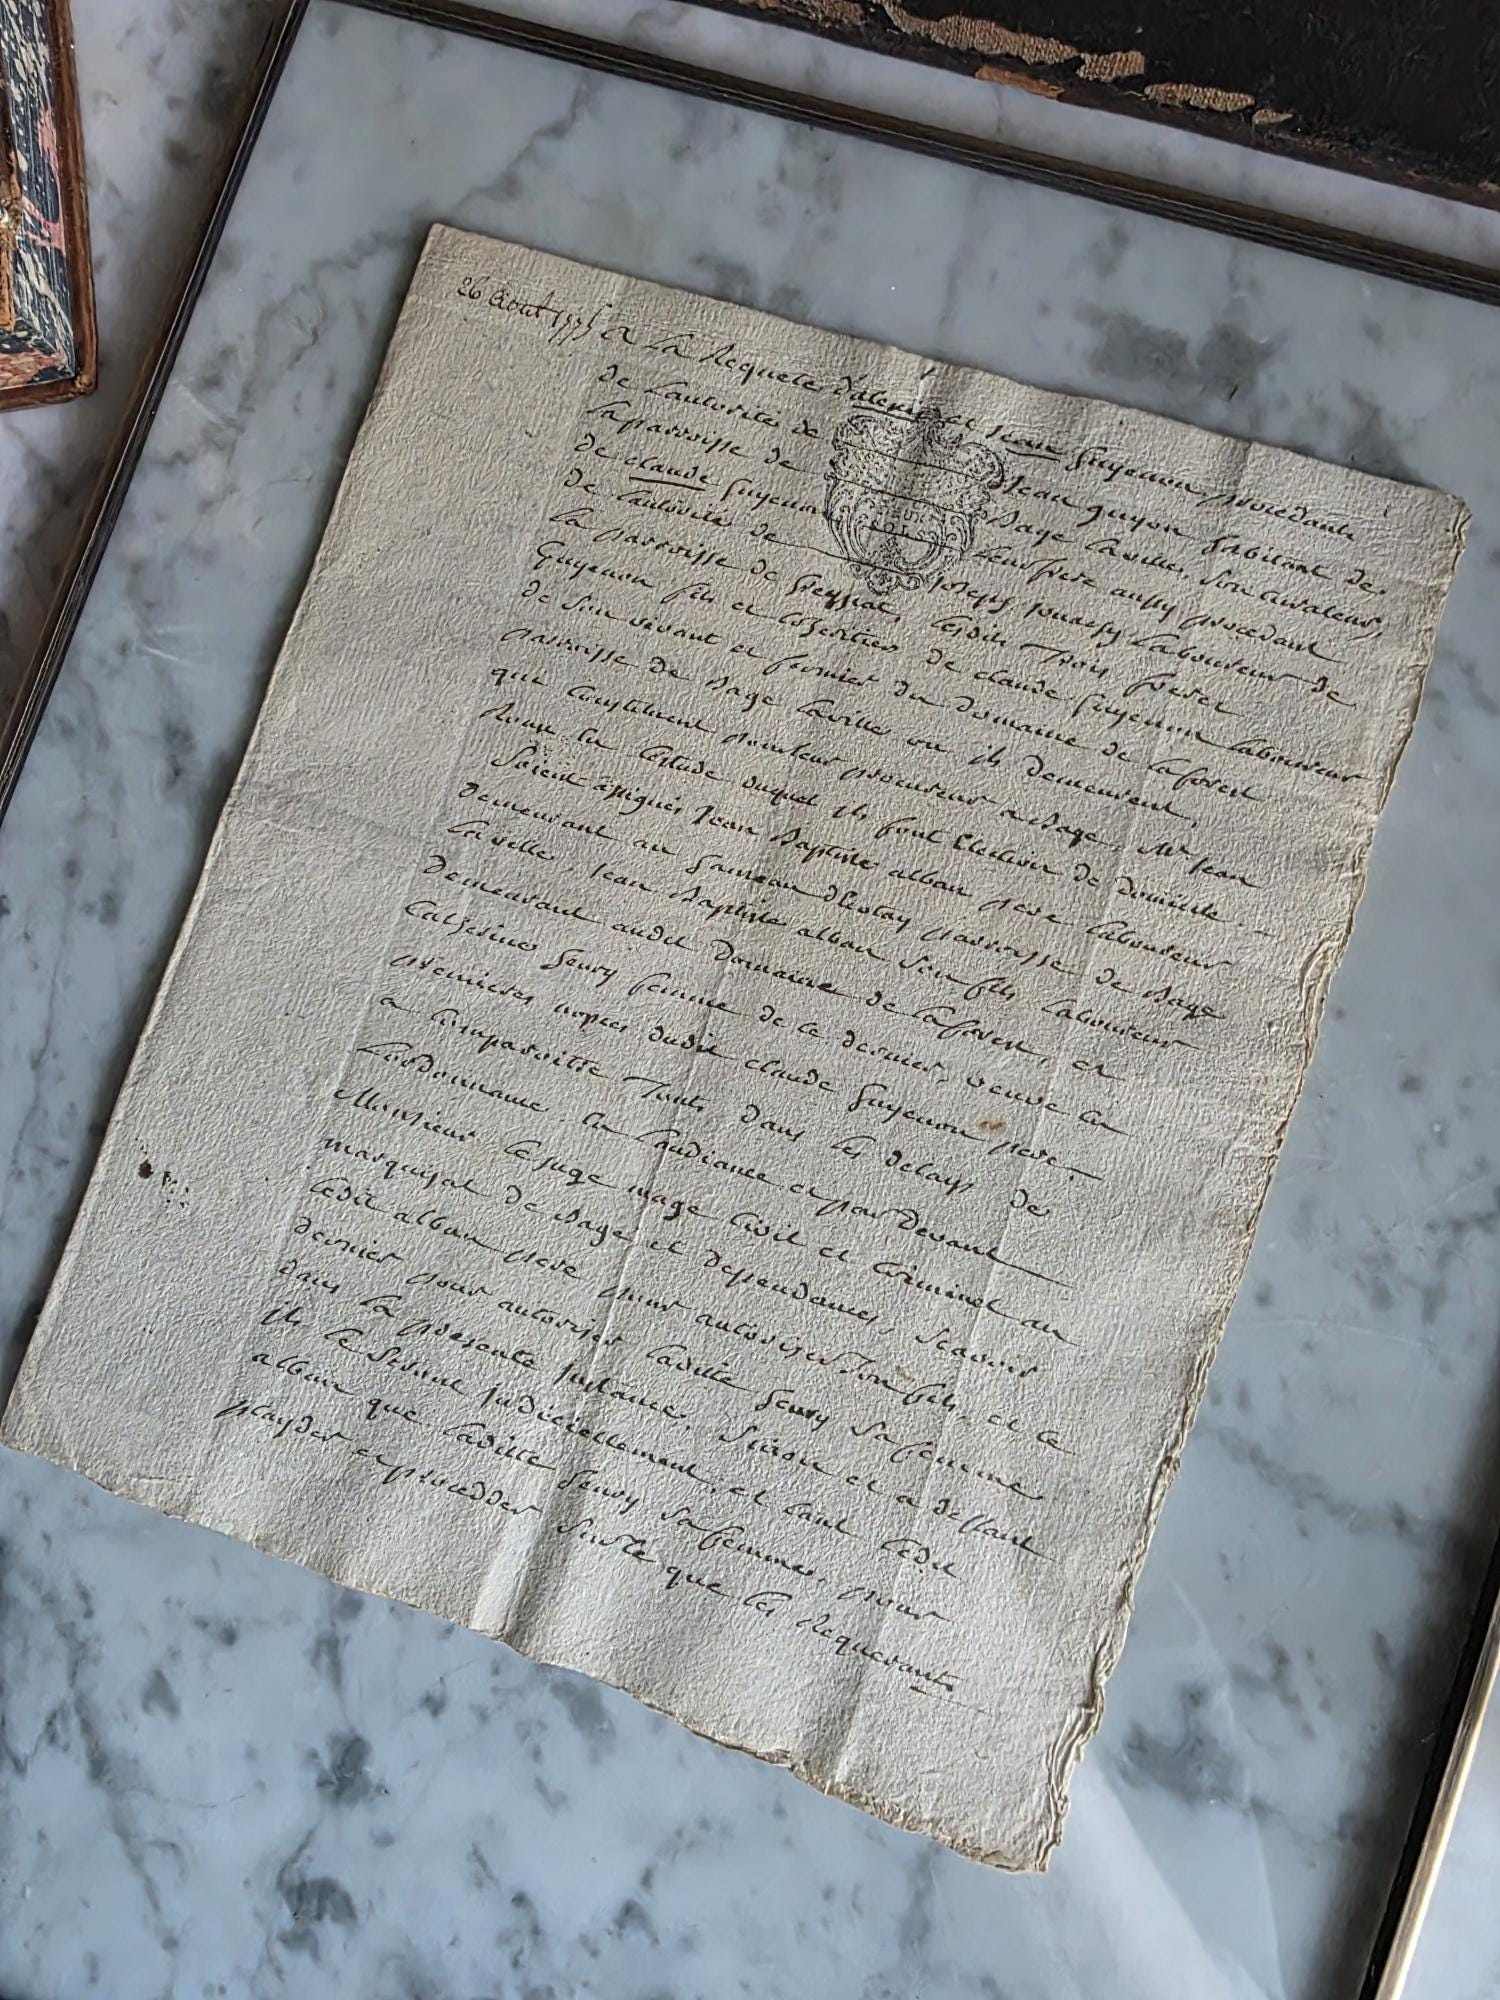 26 Aout 1775 a la Requete et Jean Guyenon, procedant
de lautorité de Jean guyon habitant de
la parroisse de Bage laville, son curateur,
de claude Guyenon leur frere aussy procedant
de lautorité de Joseph laboureur de
la parroisse de lesdits Trois freres
Guyenon fils et coheritiers de claude Guyenon laboureur
de son vivant et fermier du domaine de laforest
parroisse de Bage laville ou ils demeurent,
qui constituent pour leur procureur a Bage, Mr Jean
Roux en lestude duquel ils font Election de domicile.
Soient assignés Jean Baptiste alban pere laboureur
demeurant au hameau parroisse de Bage
laville, Jean Baptiste alban son fils laboureur
demeurant audit Domaine de laforest, et
Catherine henry femme de ce dernier, veuve en
premieres nopces dudit claude Guyenon pere.
a comparoitre Touts dans les delays de
Lordonnance, en laudiance et par devant
Monsieur le juge mage Civil et Criminel au
marquisat de Bage et dependances, scavoir
ledit alban pere pour autoriser son fils, et le
dernier pour autoriser ladite henry sa femme
dans la presente Instance, Sinon et a deffaut
ils le seront judiciellement, et tant ledit
alban que ladite henry sa femme, pour
playder et proceder surce que les Requerants